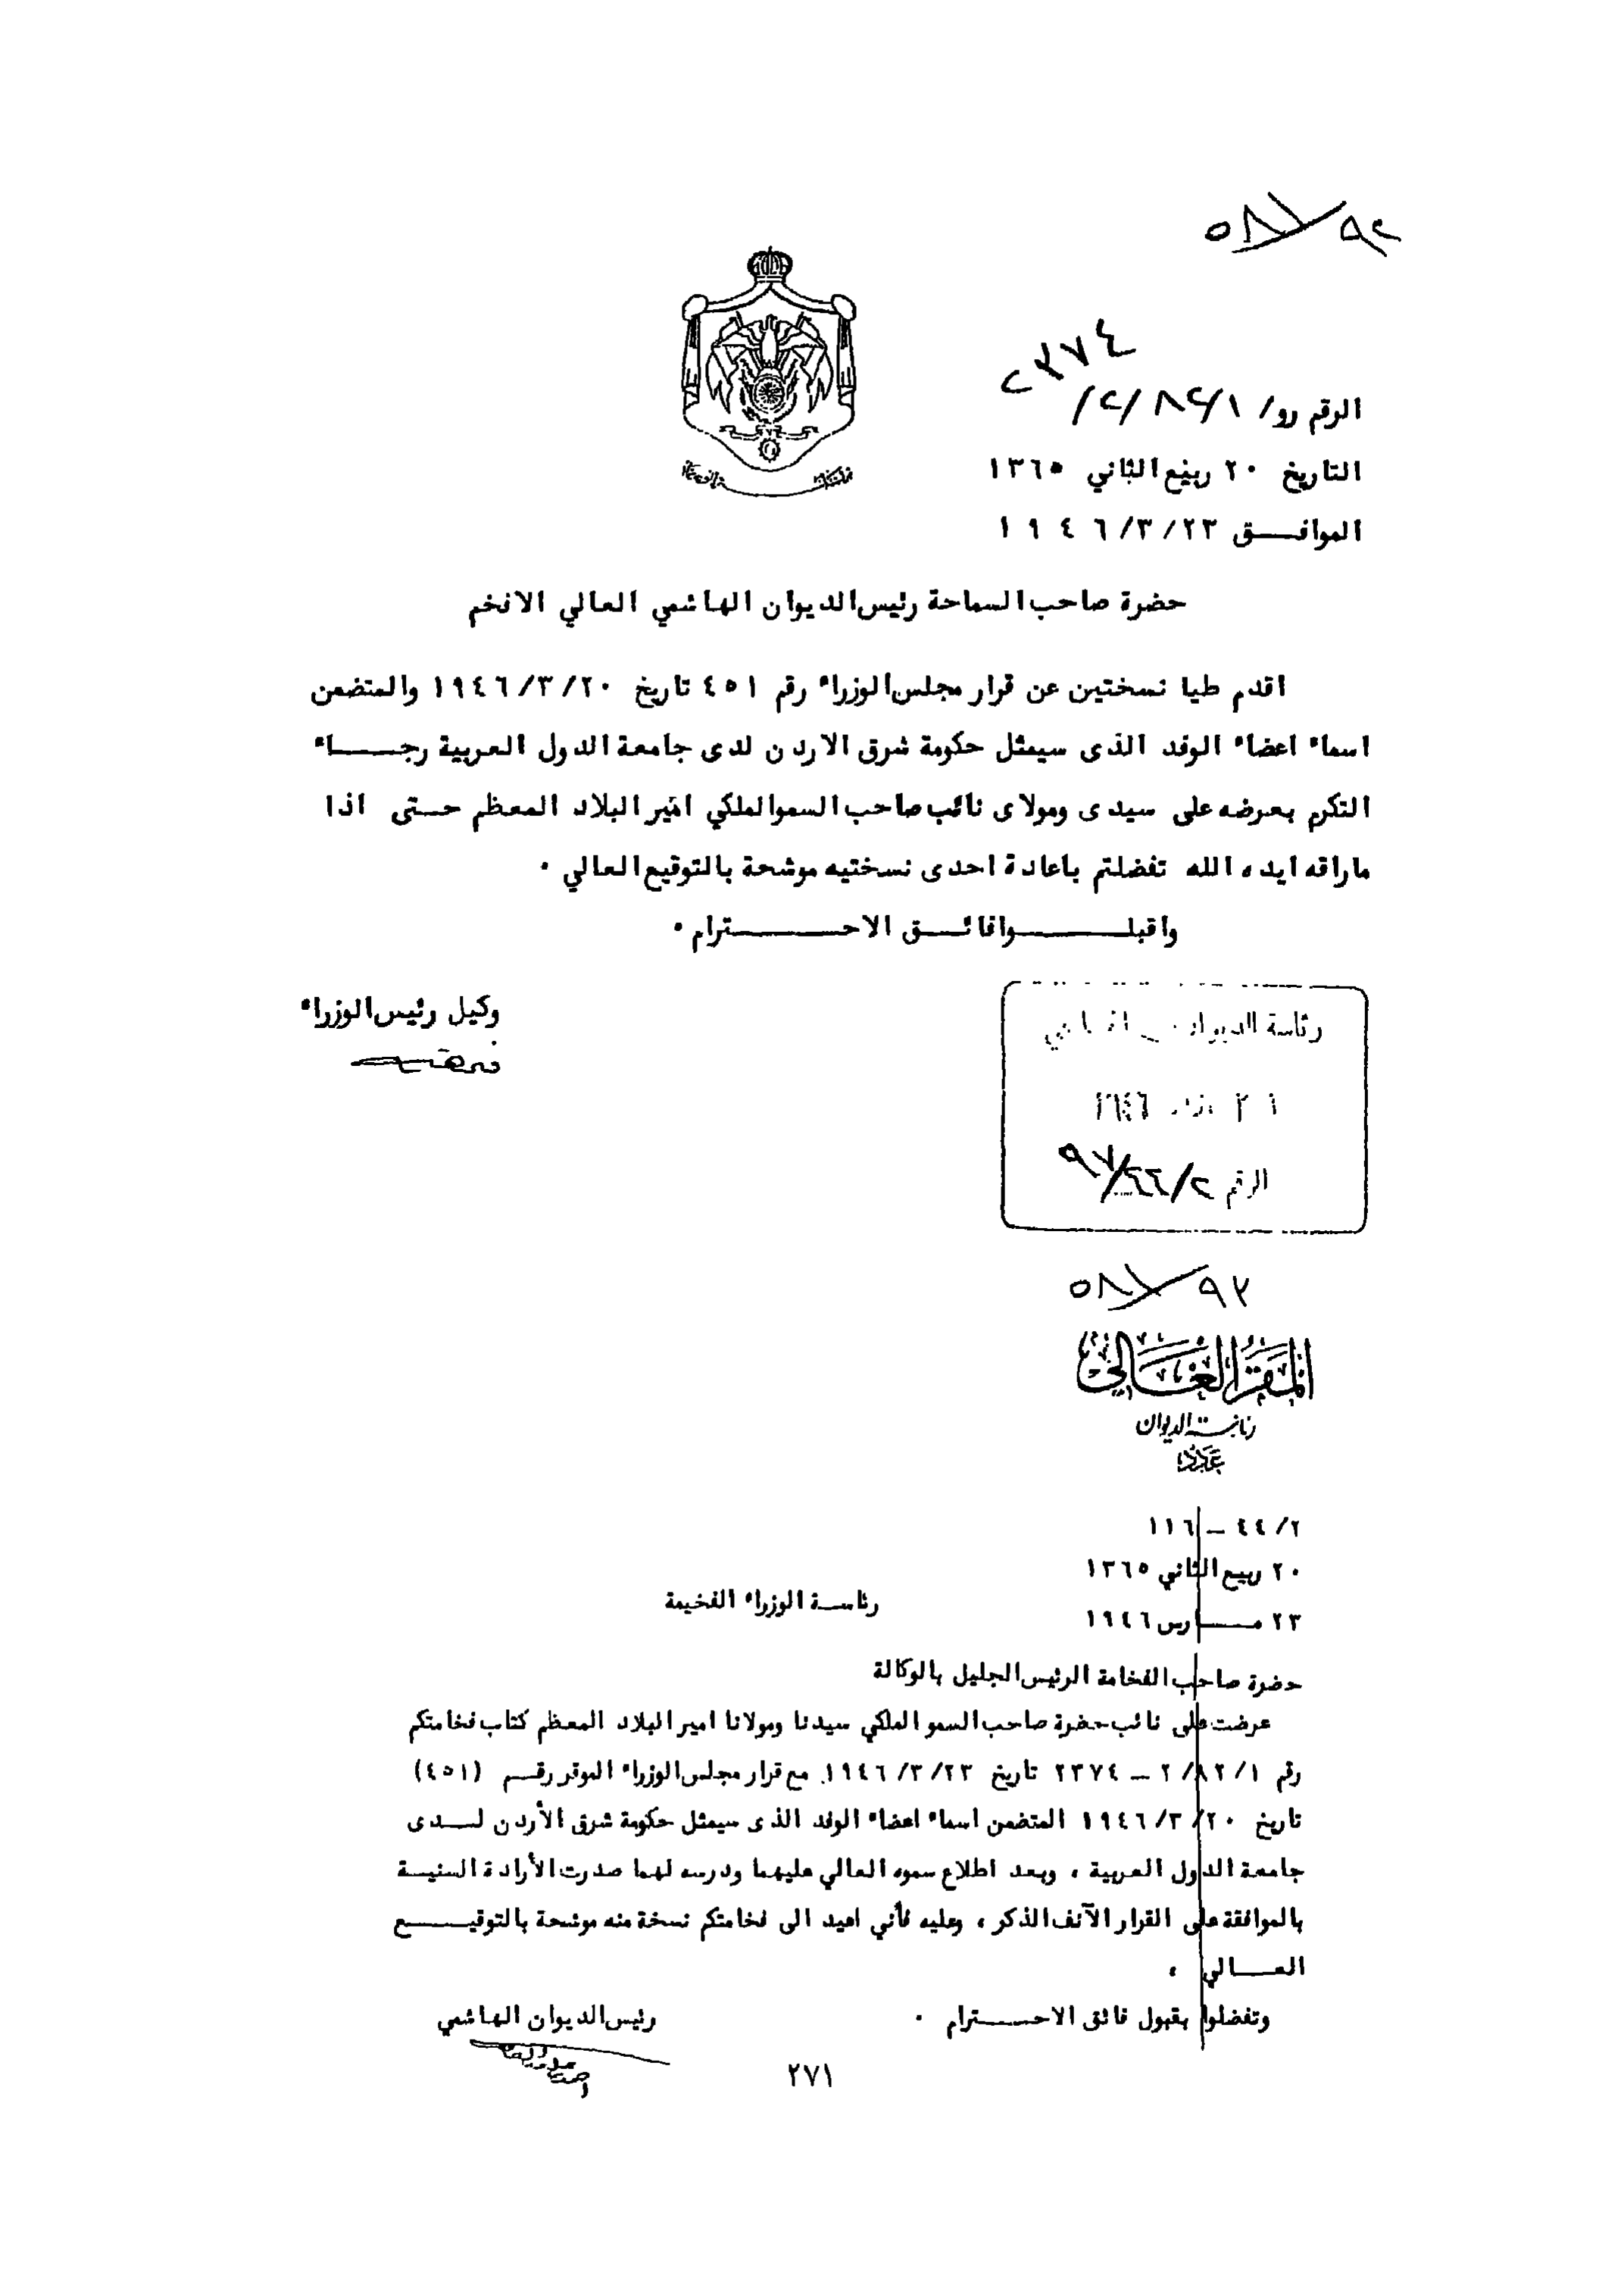 ٥٨/٩٢
٢٣٧٤
الرقم رو/ ٢/٨٢/١/
التاريخ ٢٠ ربيع الثاني ١٣٦٥
الموافـــق ٢٣/٣/١٩٤٦
حضرة صاحب السماحة رئيس الديوان الهاشمي العالي الافخم
اقدم طيا نسختين عن قرار مجلس الوزراء رقم ٤٥١ تاريخ ٢٠/٣/١٩٤٦ والمتضمن
اسماء اعضاء الوفد الذى سيمثل حكومة شرق الاردن لدى جامعة الدول العربية رجـــاء
التكرم بعرضه على سيدى ومولاى نائب صاحب السمو الملكي امير البلاد المعظم حـتى اذا
ماراقه ايده الله تفضلتم باعادة احدى نسختيه موشحة بالتوقيع العالي ٠
واقبلــــوا فائـــق الاحـــــترام ٠
وكيل رئيس الوزراء
رئاسة الديوان
الرقم ٩٧/٤٤/٢
٥٨/٩٢
المقر العالي
رئاسة الديوان
عدد
٤٤/٢ – ١١٦
٢٠ ربيع الثاني ١٣٦٥
٢٣ مـــارس ١٩٤٦
رئاســة الوزراء الفخيمة
حضرة صاحب الفخامة الرئيس الجليل بالوكالة
عرضت على نائب حضرة صاحب السمو الملكي سيدنا ومولانا امير البلاد المعظم كتاب فخامتكم
رقم ٢/٨٢/١ – ٢٣٧٤ تاريخ ٢٣/٣/١٩٤٦ مع قرار مجلس الوزراء الموقر رقـــم (٤٥١)
تاريخ ٢٠/٣/١٩٤٦ المتضمن اسماء اعضاء الوفد الذى سيمثل حكومة شرق الأردن لـــدى
جامعة الدول العربية ، وبعد اطلاع سموه العالي عليهما ودرسه لهما صدرت الأرادة السنيـــة
بالموافقة على القرار الآنف الذكر ، وعليه فأني اعيد الى فخامتكم نسخة منه موشحة بالتوقيـــــع
العـــالي ،
وتفضلوا بقبول فائق الاحــــترام ٠
رئيس الديوان الهاشمي
٢٧١